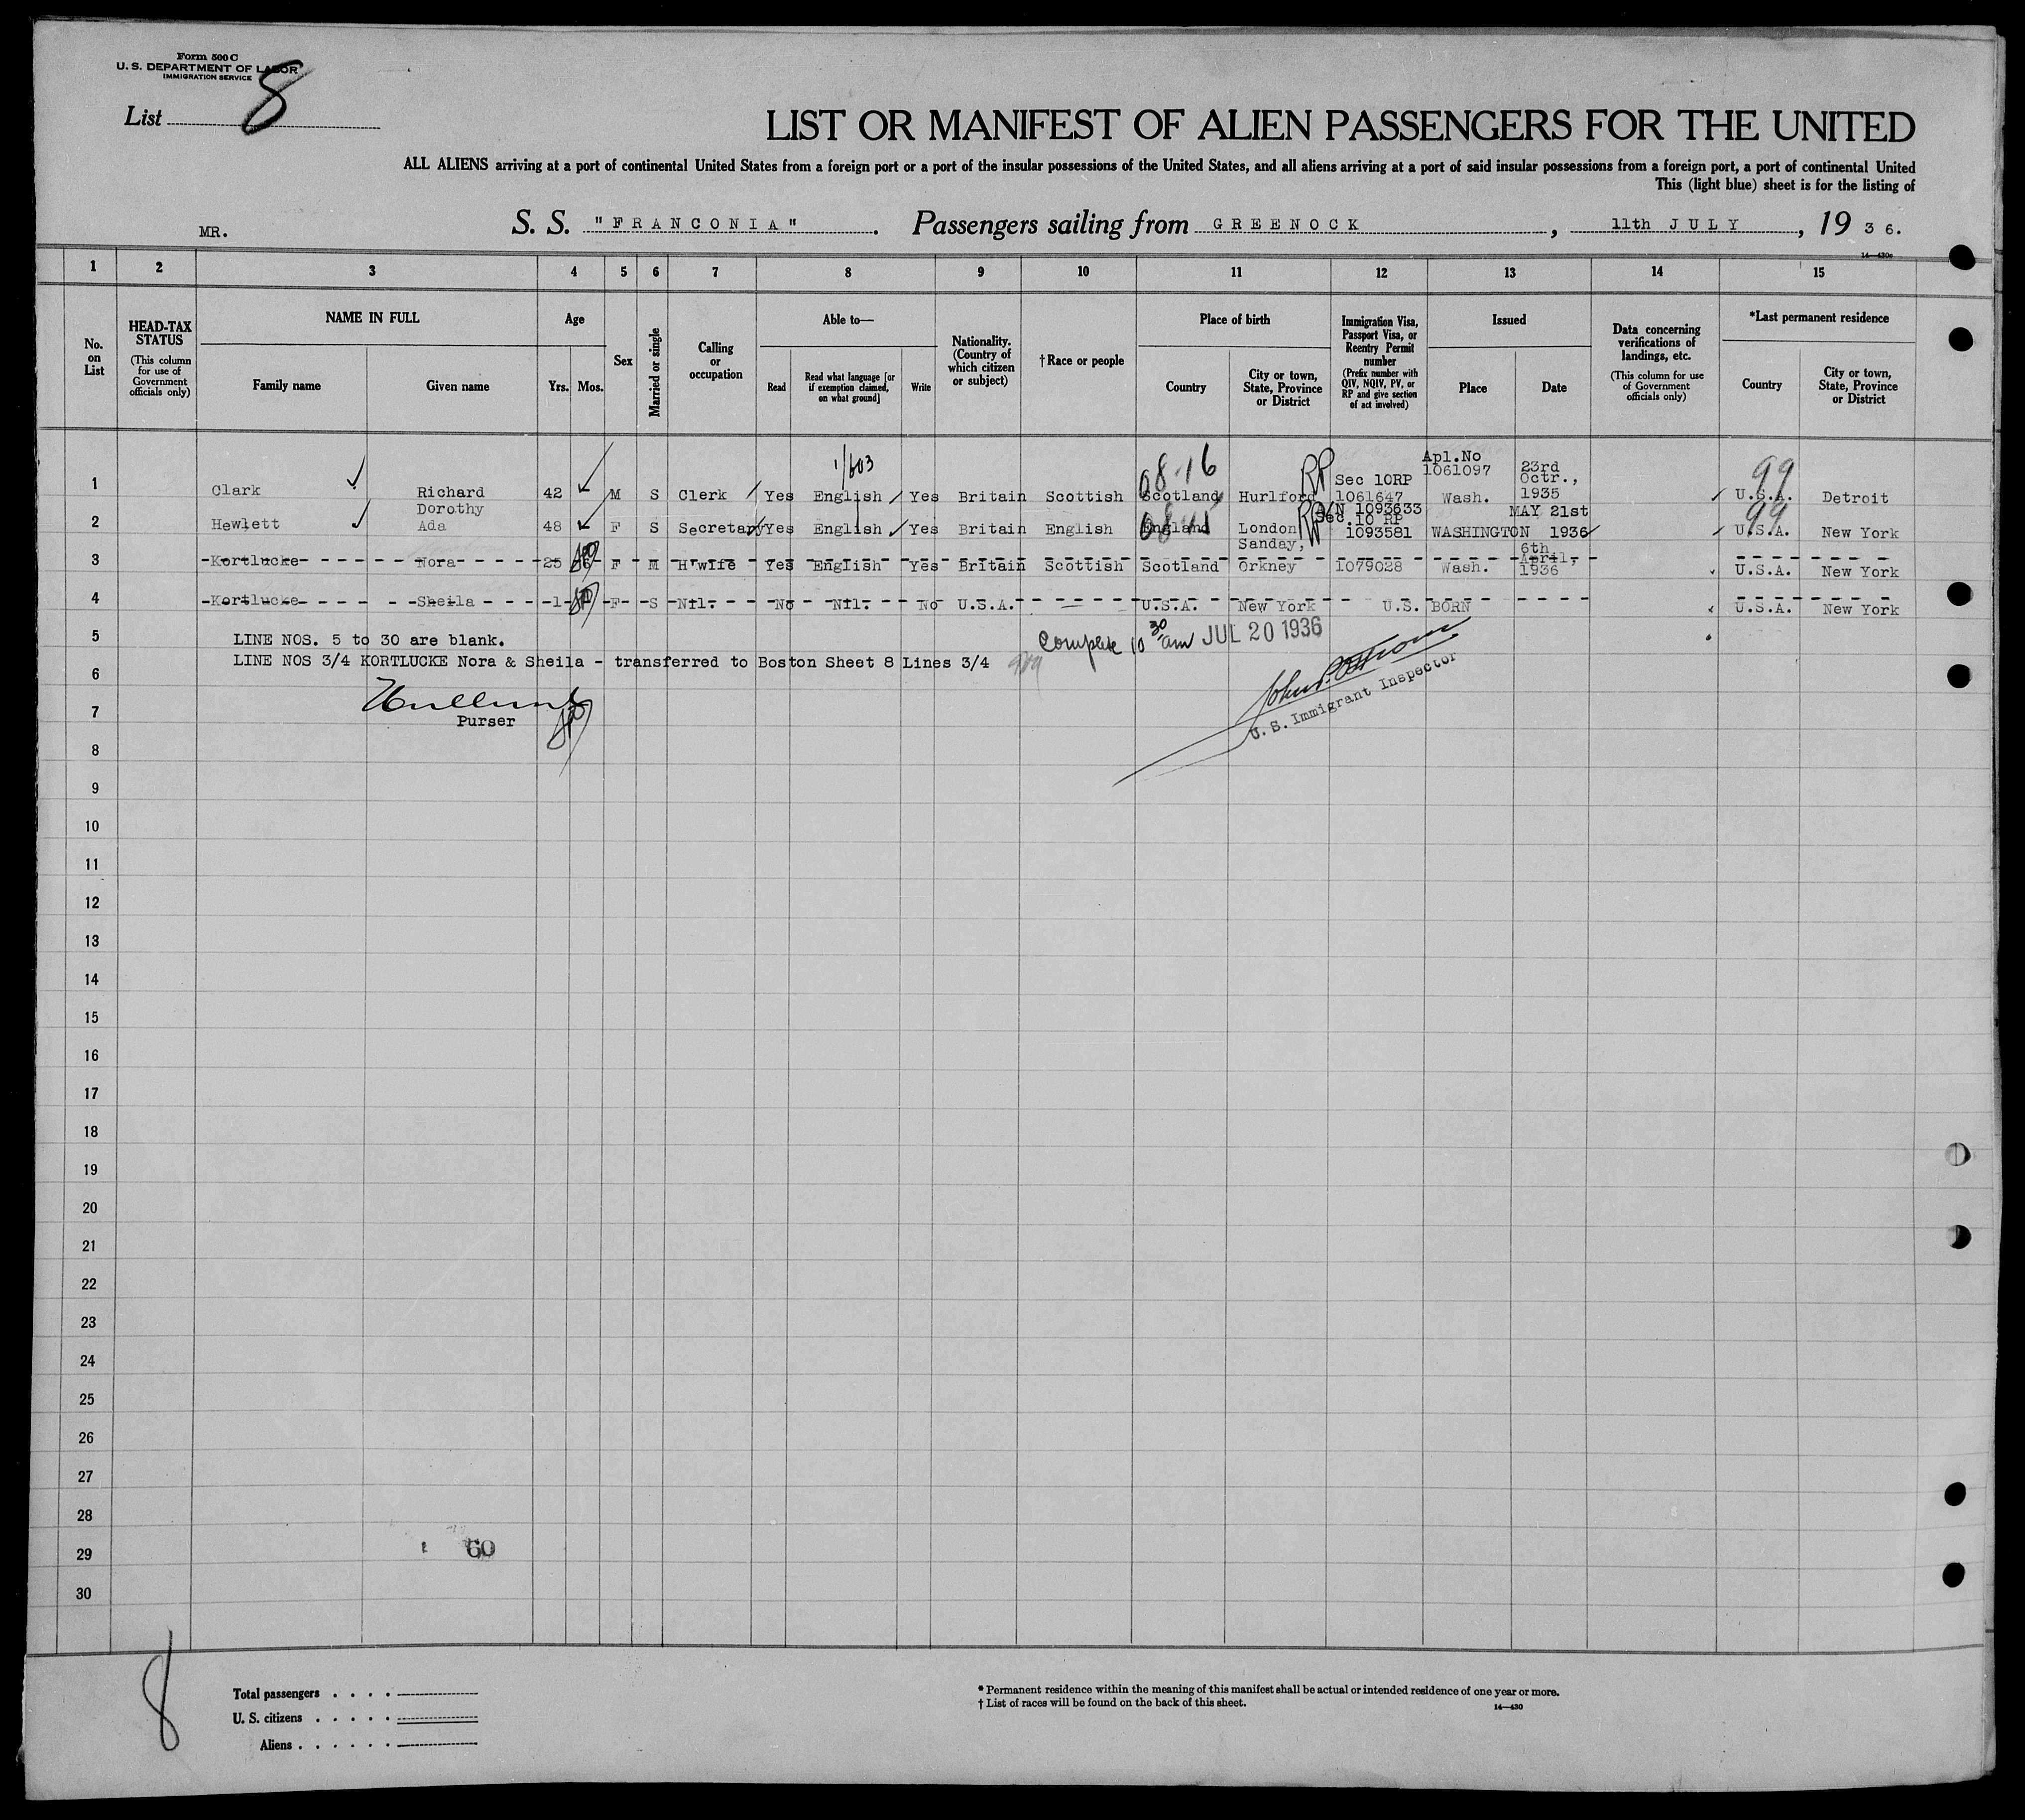 Form 500 C
U. S. DEPARTMENT OF LABOR
IMMIGRATION SERVICE
List 8
LIST OR MANIFEST OF ALIEN PASSENGERS FOR THE UNITED
ALL ALIENS arriving at a port of continental United States from a foreign port or a port of the insular possessions of the United States, and all aliens arriving at a port of said insular possessions from a foreign port, a port of continental United
This (light blue) sheet is for the listing of
MR. S. S. "FRANCONIA". Passengers sailing from GREENOCK, 11th JULY, 1936.
14—430c
1 2 3 4 5 6 7 8 9 10 11 12 13 14 15
No. on List
HEAD-TAX STATUS
(This column for use of Government officials only)
NAME IN FULL
Family name Given name
Age
Yrs. Mos.
Sex
Married or single
Calling or occupation
Able to—
Read
Read what language [or if exemption claimed, on what ground]
Write
Nationality. (Country of which citizen or subject)
†Race or people
Place of birth
Country
City or town, State, Province or District
Immigration Visa, Passport Visa, or Reentry Permit number
(Prefix number with QIV, NQIV, PV, or RP and give section of act involved)
Issued
Place Date
Data concerning verifications of landings, etc.
(This column for use of Government officials only)
*Last permanent residence
Country
City or town, State, Province or District
1/603 08-16 RP Apl.No 99
1061097 23rd
Sec 10RP Octr.,
1 Clark Richard 42 M S Clerk Yes English Yes Britain Scottish Scotland Hurlford 1061647 Wash. 1935 U.S.A. Detroit
Dorothy A/N 1093633 MAY 21st 99
Sec. 10 RP
2 Hewlett Ada 48 F S Secretary Yes English Yes Britain English England London RP 1093581 WASHINGTON 1936 U.S.A. New York
Sanday, 6th
April,
3 Kortlucke Nora 25 F M H'wife Yes English Yes Britain Scottish Scotland Orkney 1079028 Wash. 1936 U.S.A. New York
4 Kortlucke Sheila 1 F S Nil. No Nil. No U.S.A. — U.S.A. New York U.S. BORN U.S.A. New York
5 LINE NOS. 5 to 30 are blank. Complete 10 30 am JUL 20 1936
LINE NOS 3/4 KORTLUCKE Nora & Sheila - transferred to Boston Sheet 8 Lines 3/4
6
7 Purser U. S. Immigrant Inspector
8
9
10
11
12
13
14
15
16
17
18
19
20
21
22
23
24
25
26
27
28
29 60
30
8
Total passengers
U. S. citizens
Aliens
* Permanent residence within the meaning of this manifest shall be actual or intended residence of one year or more.
† List of races will be found on the back of this sheet.
14—430